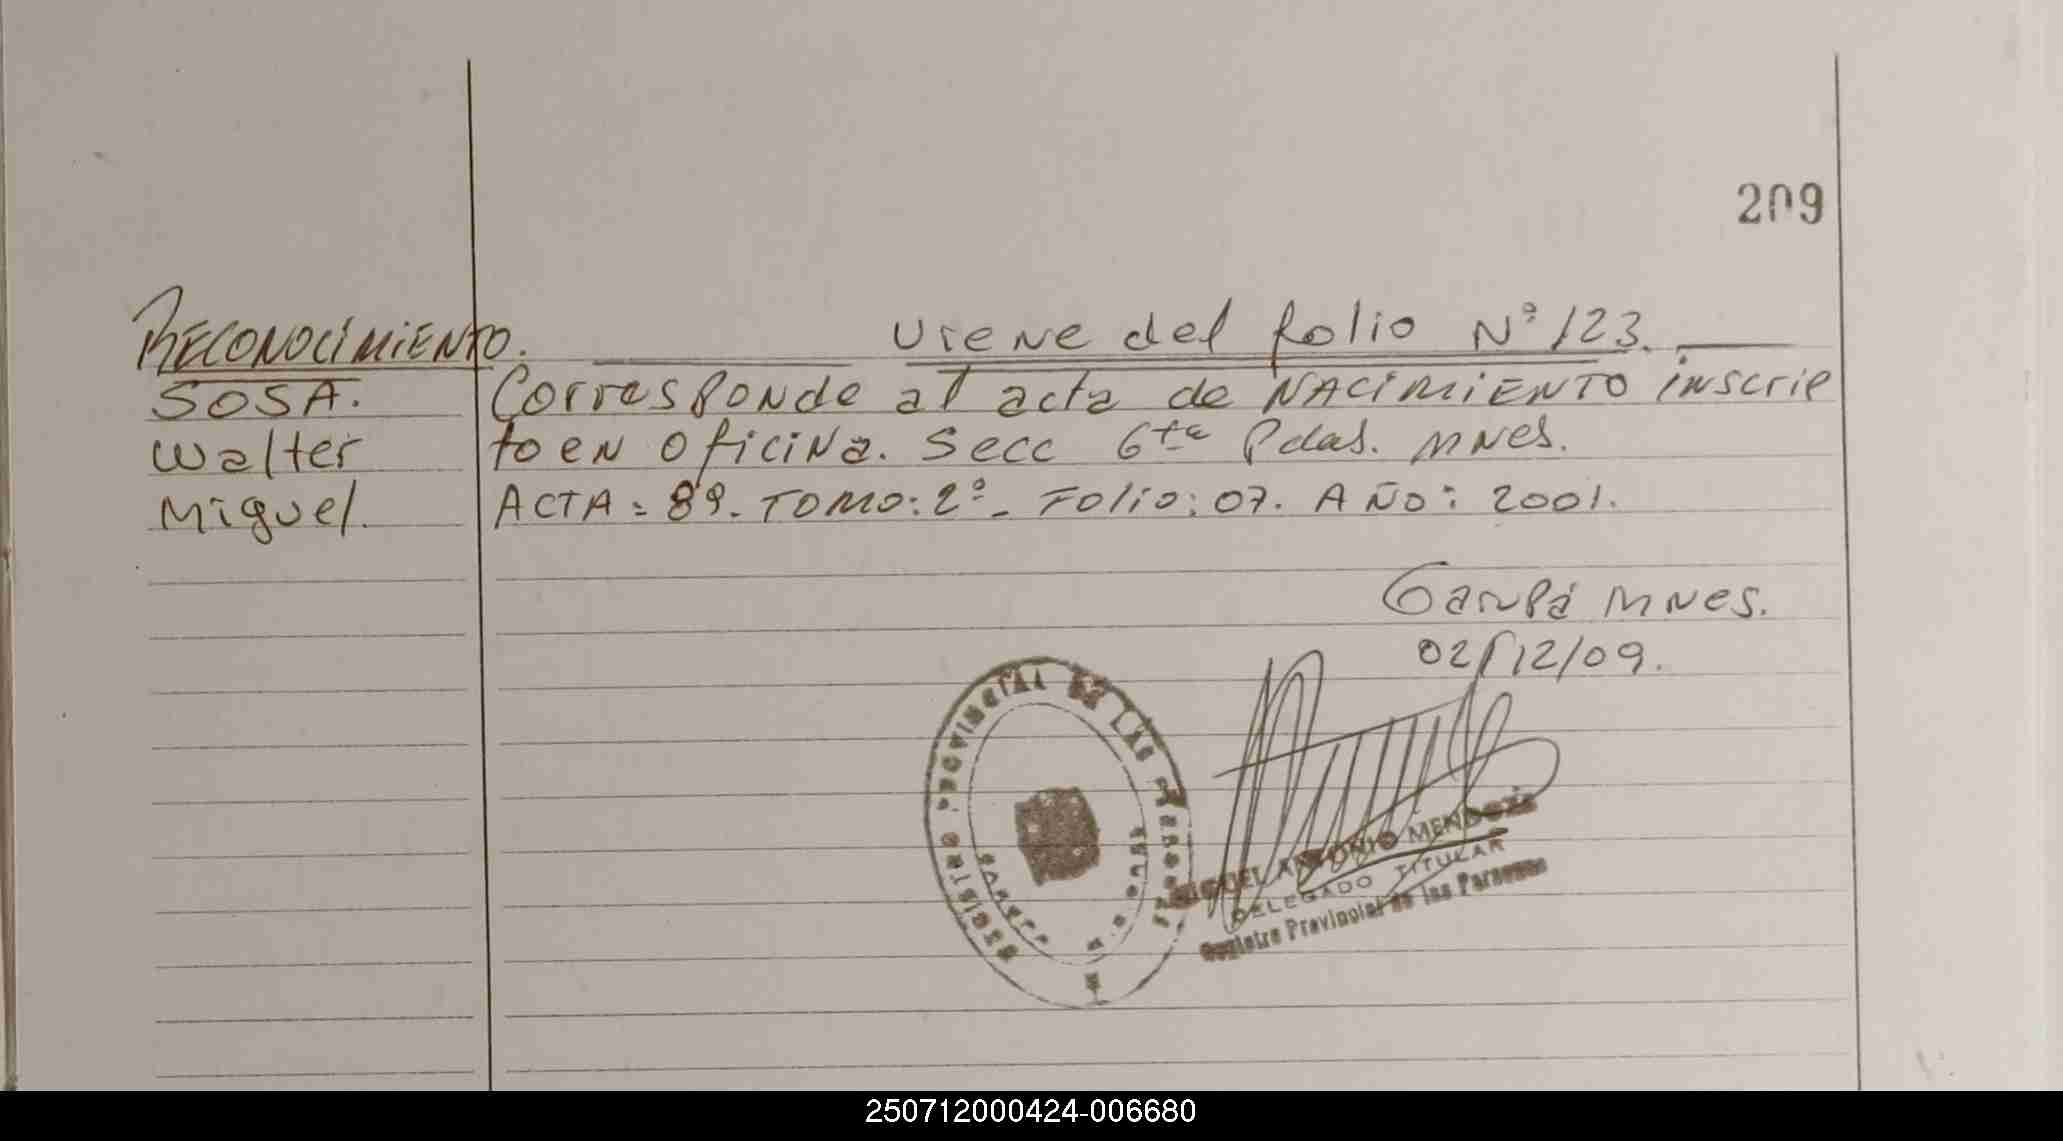 209
RECONOCIMIENTO. Viene del folio Nº 123.
SOSA. Corresponde al acta de NACIMIENTO inscrip
Walter to en oficina. Secc 6ta Pdas. MNes.
Miguel. ACTA: 89. TOMO: 2º - Folio: 07. AÑO: 2001.
Garupá MNes.
02/12/09.
REGISTRO PROVINCIAL DE LAS PERSONAS
MIGUEL ANTONIO MENDOZA
DELEGADO TITULAR
Registro Provincial de las Personas
250712000424-006680